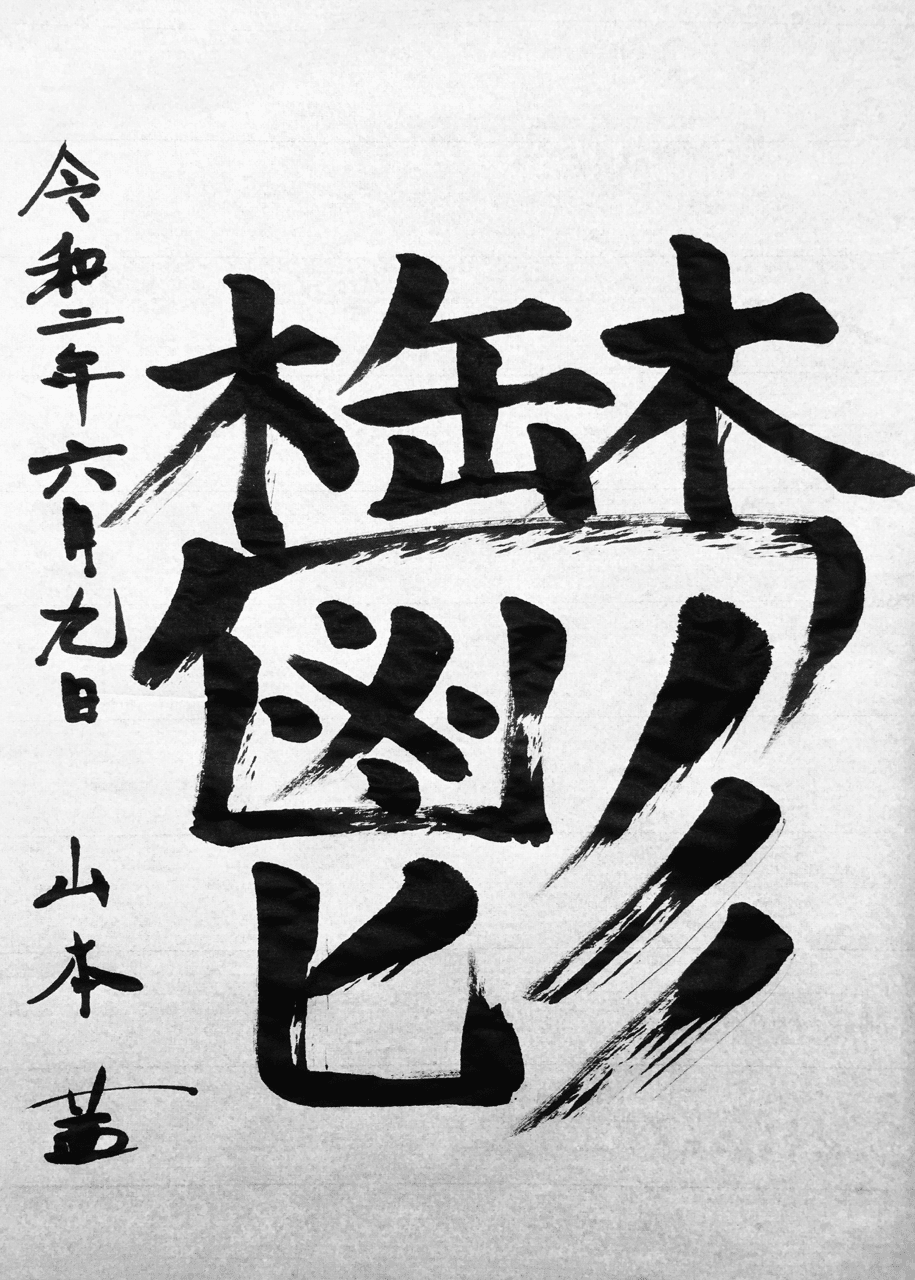 鬱
令和二年六月九日
山本